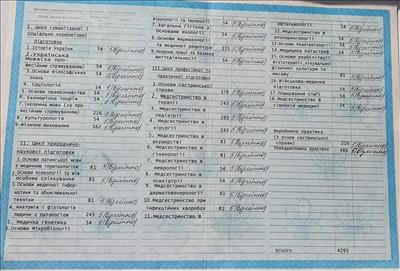 I. Цикл гуманітарної і
соціально-економічної
підготовки
1.Історія України 54 5(відмінно)
2.Українська
мова(за про-
фесійним спрямуванням) 54 5(відмінно)
3.Основи Філософських
знань 54 5(відмінно)
4. Соціологія 54 5(відмінно)
5. Основи правознавства 54 5(відмінно)
6. Економічна теорія 54 5(відмінно)
7.Іноземна мова (за про-
фесійним спрямуванням) 216 5(відмінно)
8. Культурологія 54 5(відмінно)
9.Фізичне Виховання 162 5(відмінно)
II. Цикл природничо-
наукової підготовки
1.Основи латинської мови
з медичною термінологією 81 5(відмінно)
2.Основи психології та між
особове спілкування 81 5(відмінно)
3.Основи медичної інфор-
матики та обчислювальної
техніки 81 5(відмінно)
4.Анатомія і фізіологія
людини з патологією 243 5(відмінно)
5. Медична генетика 54 5(відмінно)
6.Основи Мікробіології
вірусології та імунології
7.Загальна гігієна з
Основами екології 54 5(відмінно)
8.Основи Фармакології
та медичної рецептури 135 5(відмінно)
9.Охорона праці та безпека
життєдіяльності 54 5(відмінно)
III.Цикл професійної та
практичної підготовки
1.Основи сестринської
справи 5(відмінно)
2. Медсестринство в
терапії 243 5(відмінно)
3. Медсестринство в
педіатрії 243 5(відмінно)
4. Медсестринство в
хірургії 243 5(відмінно)
5. Медсестринство в
акушерстві 81 5(відмінно)
6.Медсестринство в
гінекології 81 5(відмінно)
7. Медсестринство в
неврології 81 5(відмінно)
8. Медсестринство в
психіатрії 54 5(відмінно)
9. Медсестринство в
дерматовенерології 81 5(відмінно)
10.Медсестринство при
інфекційних хворобах 81 5(відмінно)
11.Медсестринство в
офтальмології 54 5(відмінно)
12.Медсестринство в
5(відмінно)
13.Основи Реаніматології 5(відмінно)
14.Медицина Катастроф 5(відмінно)
15.Основи реабілітології
фізіотерапії,лікувальної
фізичної культури та
масажу 81 5(відмінно)
16.Військово-медична
підготовка 54 5(відмінно)
17."Планування сім'ї" 54 5(відмінно)
18.Медсестринство в
сімейній медицині 54 5(відмінно)
Виробнича практика:
(З основ сестринської
справи) 216 5(відмінно)
Переддипломна практика 5(відмінно)
ВСЬОГО 4293